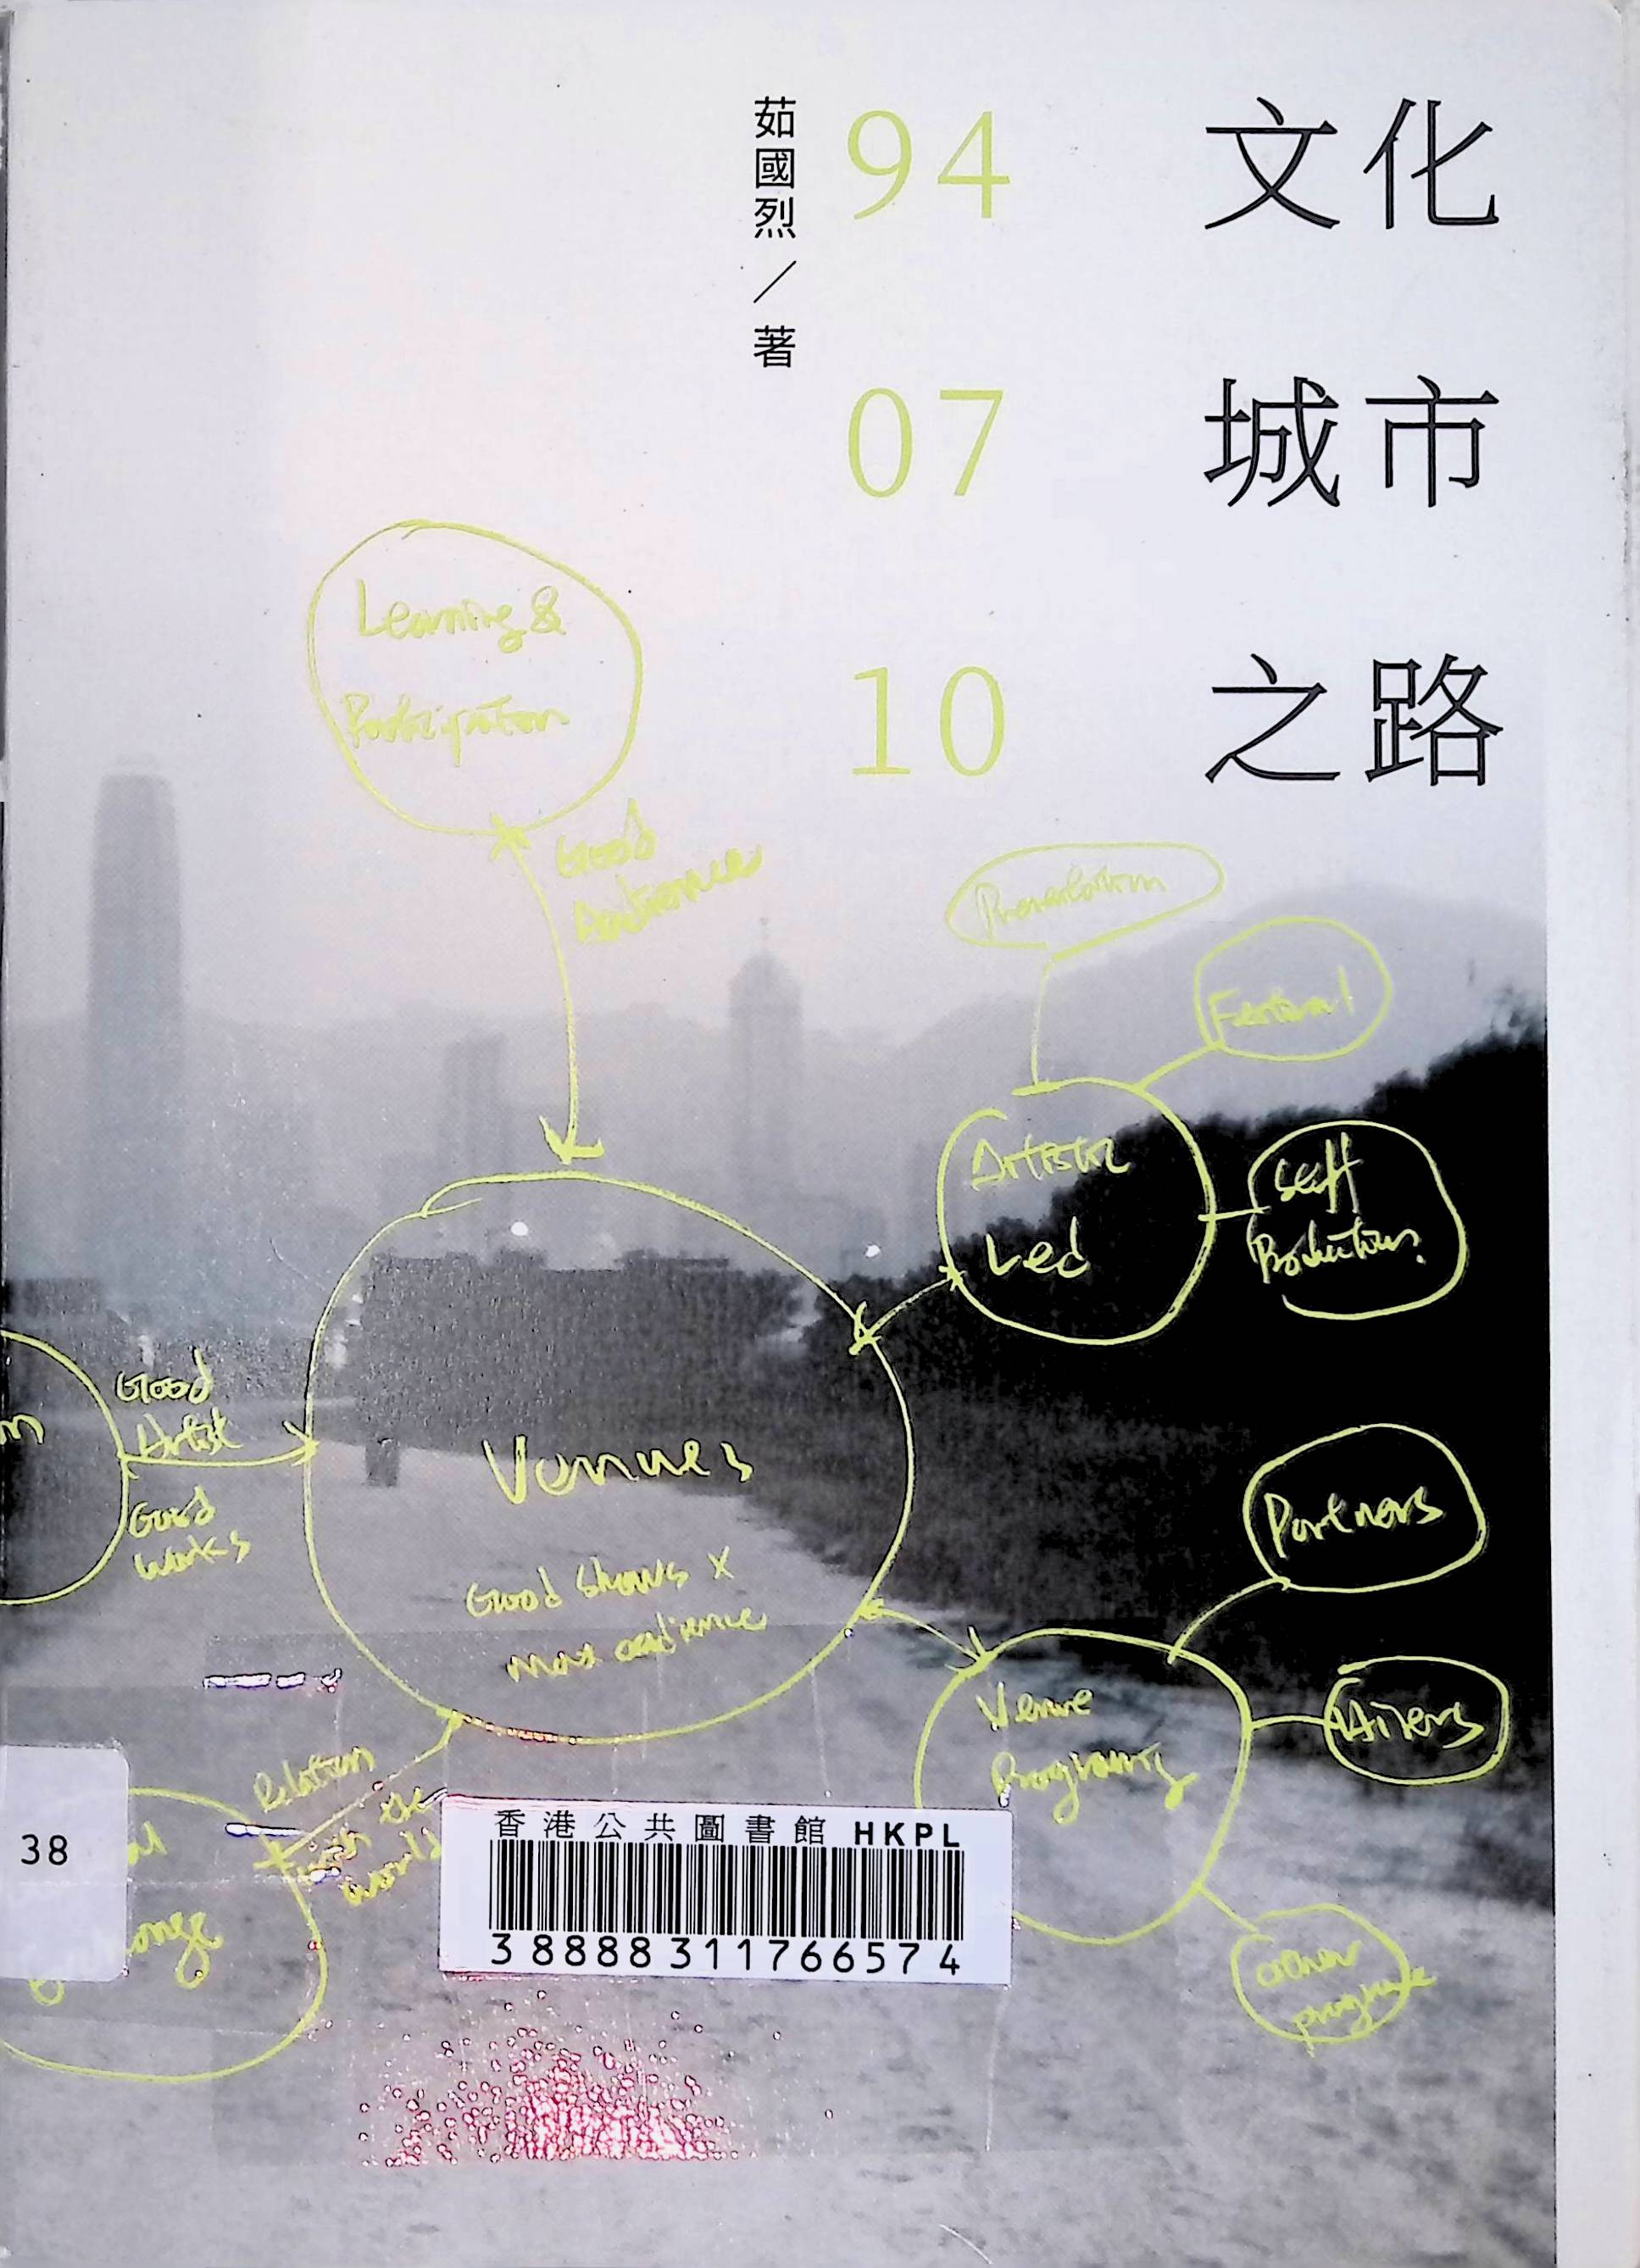 文化
城市
之路
94
07
10
茹國烈／著
Learning &
Participation
Good
Audience
Presentation
Festival
Artistic
Led
Self
Productions
Good
Artist
Good
works
Venues
Good shows x
more audience
Partners
Venue
Programing
Hirers
Relation
with the
world
other
programe
38
香港公共圖書館 HKPL
38888311766574